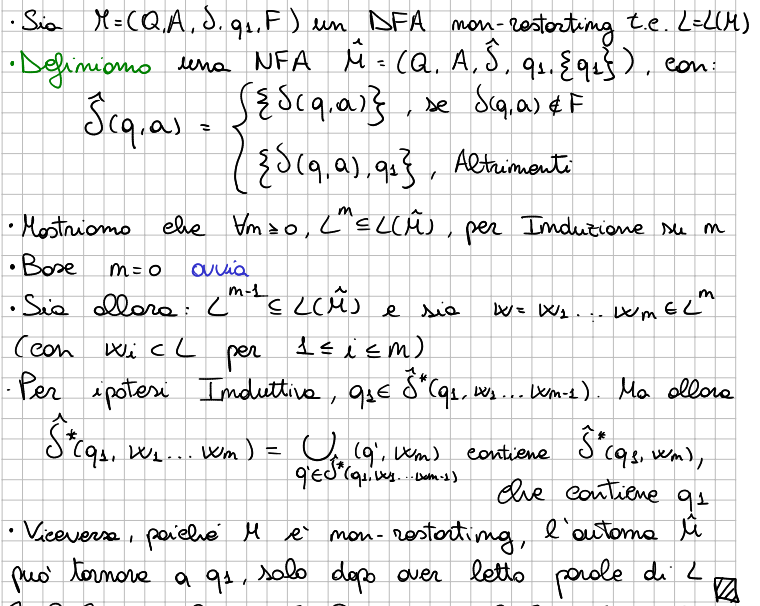 · Sia M=(Q,A,δ,q₁,F) un DFA non-restarting t.c. L=L(M)
· Definiamo una NFA M̂ = (Q, A, δ̂, q₁, {q₁}), con:
δ̂(q,a) = { {δ(q,a)} , se δ(q,a) ∉ F
{δ(q,a), q₁} , Altrimenti
· Mostriamo che ∀n≥0, Lⁿ ⊆ L(M̂), per Induzione su n
· Base n=0 ovvia
· Sia allora: Lⁿ⁻¹ ⊆ L(M̂) e sia w = w₁...wₙ ∈ Lⁿ
(con wᵢ ⊂ L per 1 ≤ i ≤ n)
· Per ipotesi Induttiva, q₁ ∈ δ̂*(q₁, w₁...wₙ₋₁). Ma allora
δ̂*(q₁, w₁...wₙ) = ⋃ (q', wₙ) contiene δ̂*(q₁, wₙ),
q'∈δ̂*(q₁,w₁...wₙ₋₁)
che contiene q₁
· Viceversa, poiché M è non-restarting, l'automa M̂
può tornare a q₁, solo dopo aver letto parole di L